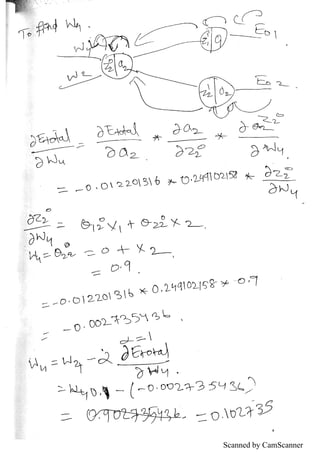 To find W4.
W1
W2
z2⁰ | a2
z1¹ | a1
E01
z2¹ | a2
E02
∂Etotal/∂W4 = ∂Etotal/∂a2 * ∂a2/∂z2⁰ * ∂z2⁰/∂W4
= -0.012201316 * 0.249102158 * ∂z2⁰/∂W4
∂z2⁰/∂W4 = θ12⁰ x1 + θ22⁰ x2
W4 = θ22⁰ = 0 + x2
= 0.9
= -0.012201316 * 0.249102158 * 0.9
= -0.002735436
α=1
W4 = W4 - α ∂Etotal/∂W4
= 0.1 - (-0.002735436)
= 0.902735436. = 0.102735
Scanned by CamScanner